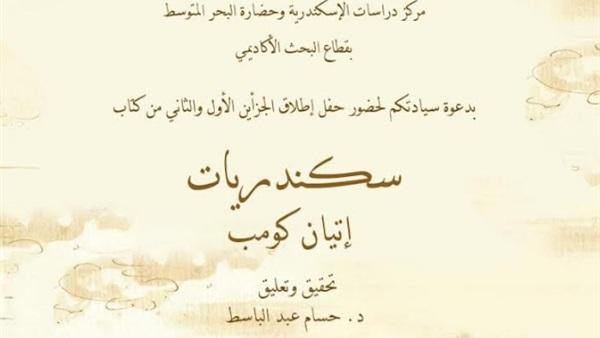 مركز دراسات الإسكندرية وحضارة البحر المتوسط
بقطاع البحث الأكاديمي
بدعوة سيادتكم لحضور حفل إطلاق الجزأين الأول والثاني من كتاب
سكندريات
إتيان كومب
تحقيق وتعليق
د. حسام عبد الباسط